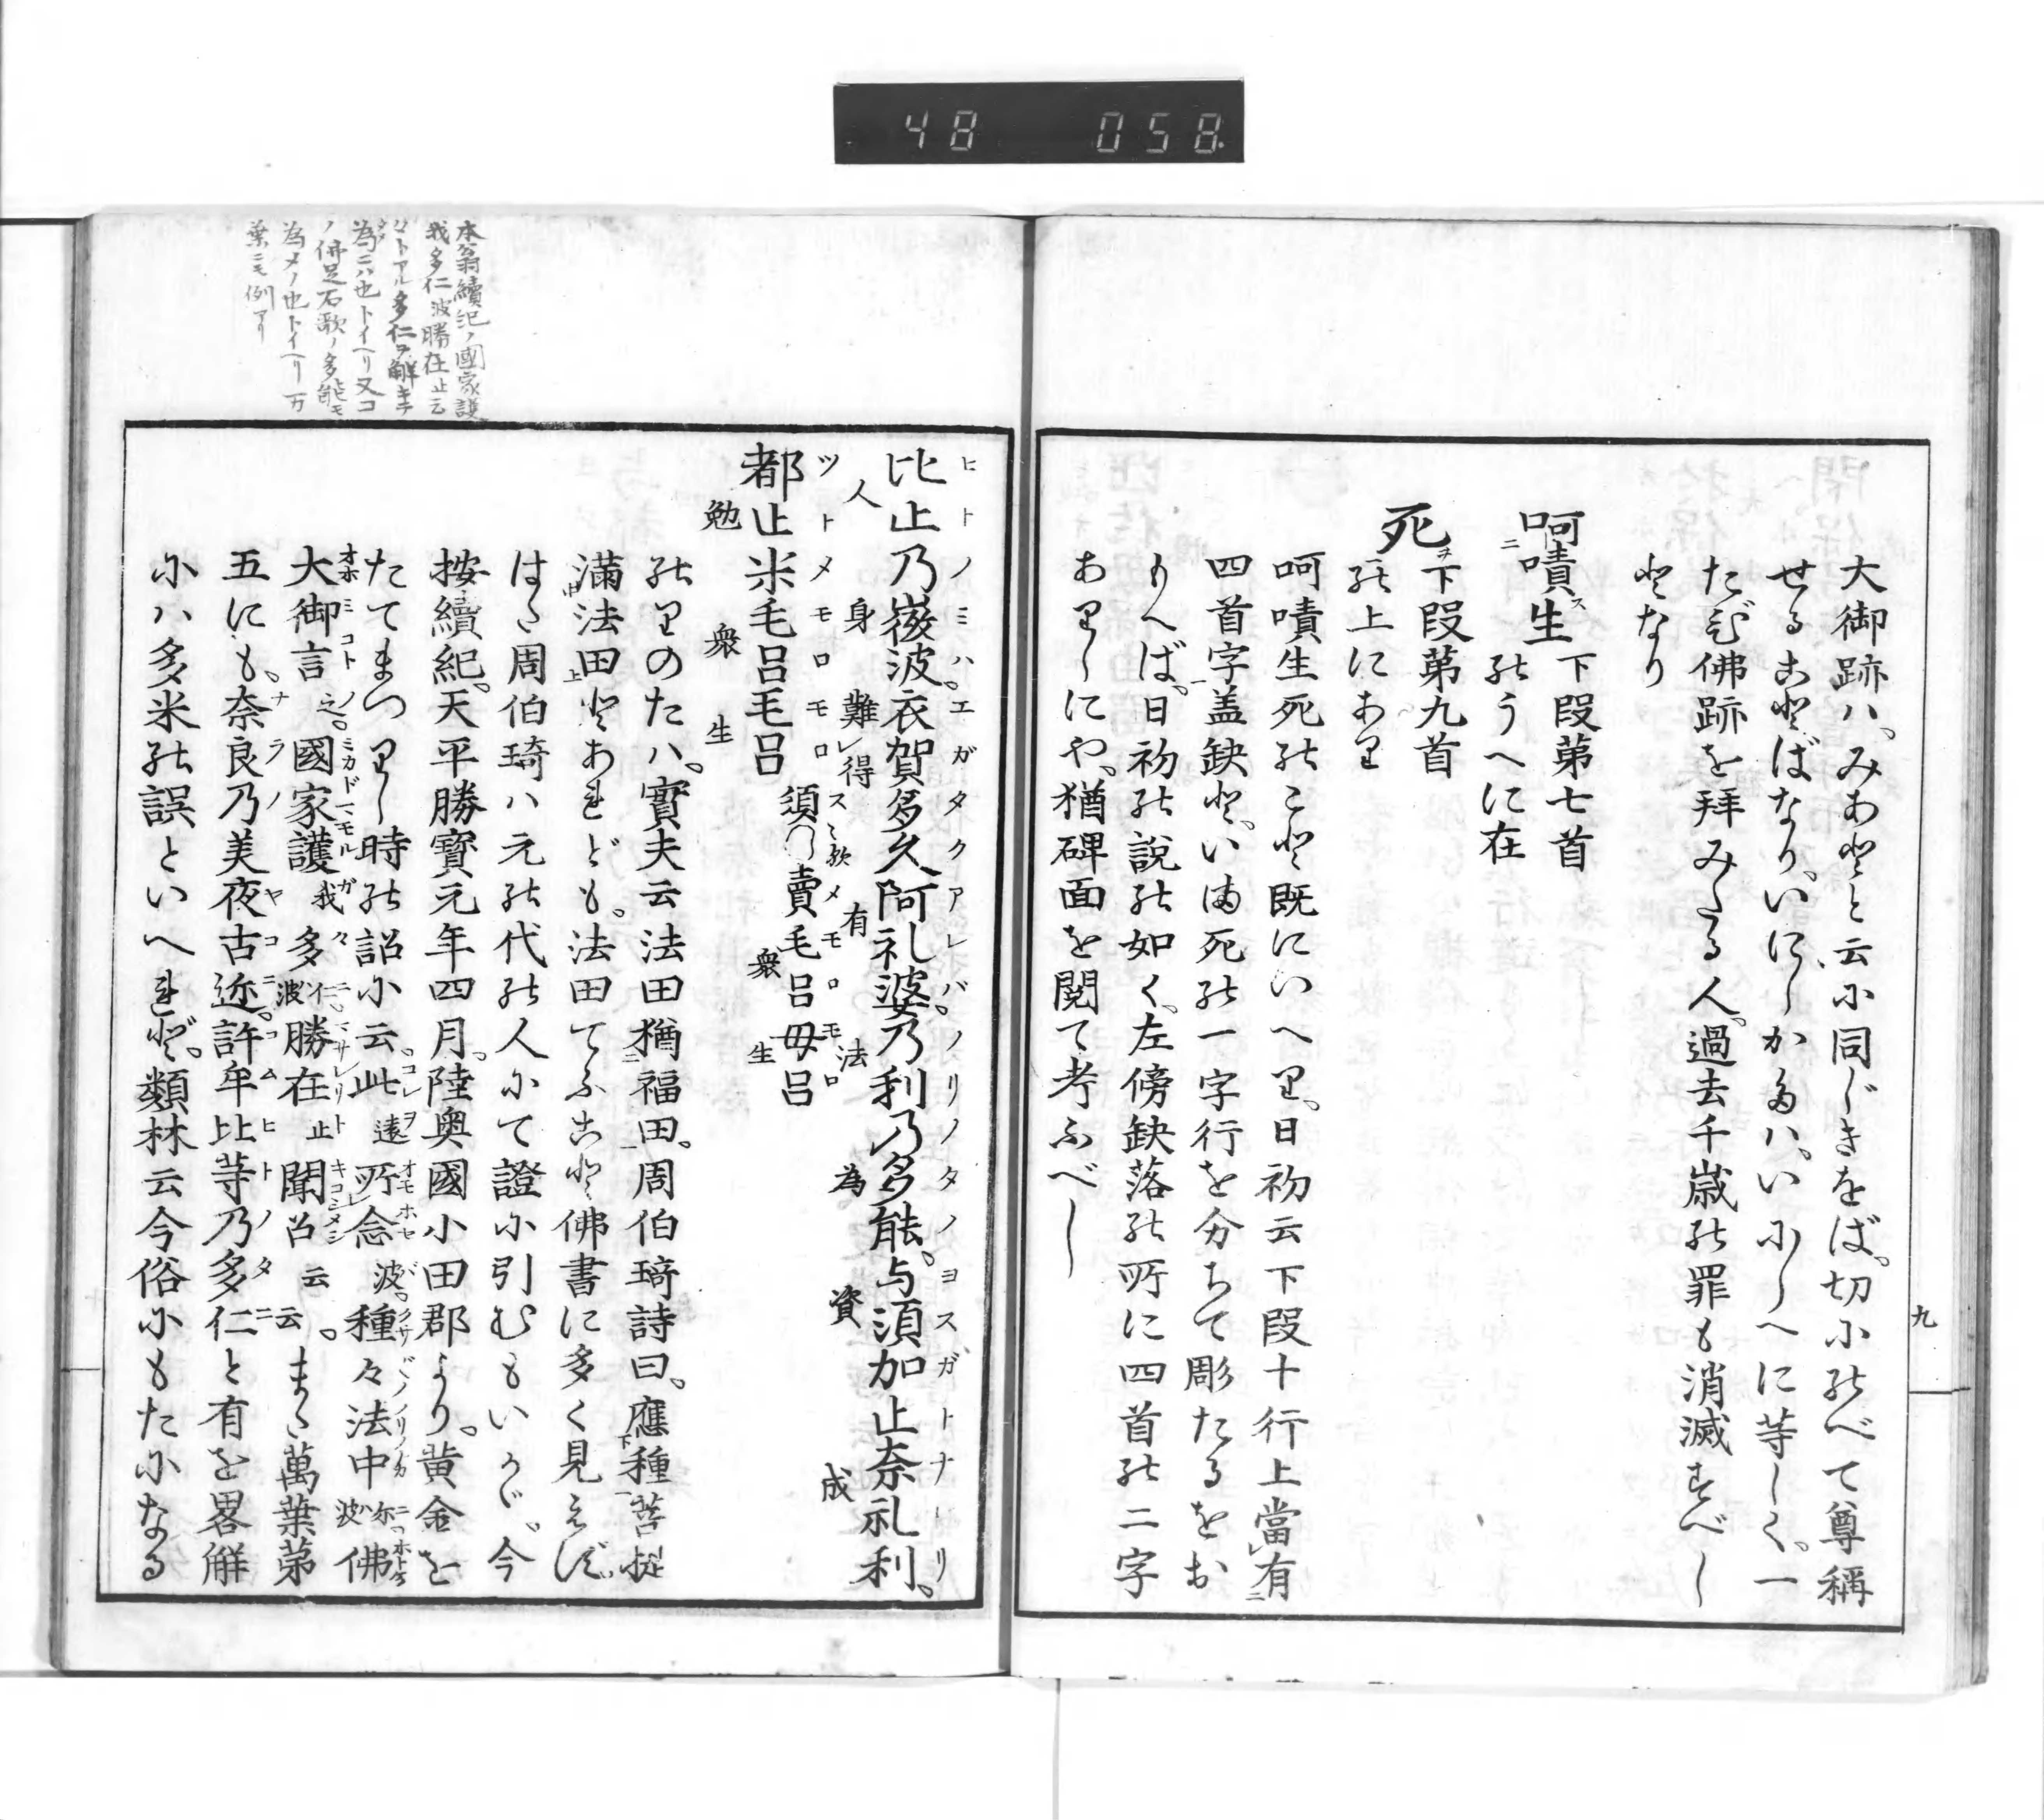 48 058
大御跡ハ、みあとと云小同じきをば。切小のべて尊稱
せることばなり、いにしかたハ、い小しへに等しく、一
たび佛跡を拜みたる人。過去千歳の罪も消滅すべし
となり
呵嘖生 下段第七首
のうへに在
死 下段第九首
の上にあり
呵嘖生死のこと既にいへり。日初云下段十行上當有
四首字蓋缺と、いま死の一字行を分ちて彫たるをお
もへば、日初の説の如く、左傍缺落の所に四首の二字
ありしにや。猶碑面を閲て考ふべし
九
比止乃微波。衣賀多久阿礼婆。乃利乃多能。与須加止奈礼利。
ヒトノミハエガタクアレバノリノタノヨスガトナレリ
人 身 難得 有 法 為 資 成
都止米毛呂毛呂 須〻賣毛呂毋呂
ツトメモロモロ スヽ歟メモロモロ
勉 衆 生 衆 生
のりのたハ。寳夫云法田猶福田。周伯琦詩曰。應種菩提
滿法田とあれども。法田てふこと佛書に多く見えず。
はた周伯琦ハ元の代の人小て證小引むもいかゞ、今
按續紀。天平勝寳元年四月。陸奥國小田郡より。黄金を
たてまつりし時の詔小云。此遠所念波。種々法中尓波佛
大御言之。國家護我多仁波勝在止聞召云云。また萬葉第
五にも。奈良乃美夜古迩。許牟比等乃多仁と有を畧解
小ハ多米の誤といへれど。類林云今俗小もた小なる
本翁續紀ノ國家護
我多仁波勝在止云
々トアル多仁ヲ解キテ
為ニハ也トイヘリ又コ
ノ佛足石歌ノ多能モ
為メノ也トイヘリ万
葉ニモ例アリ